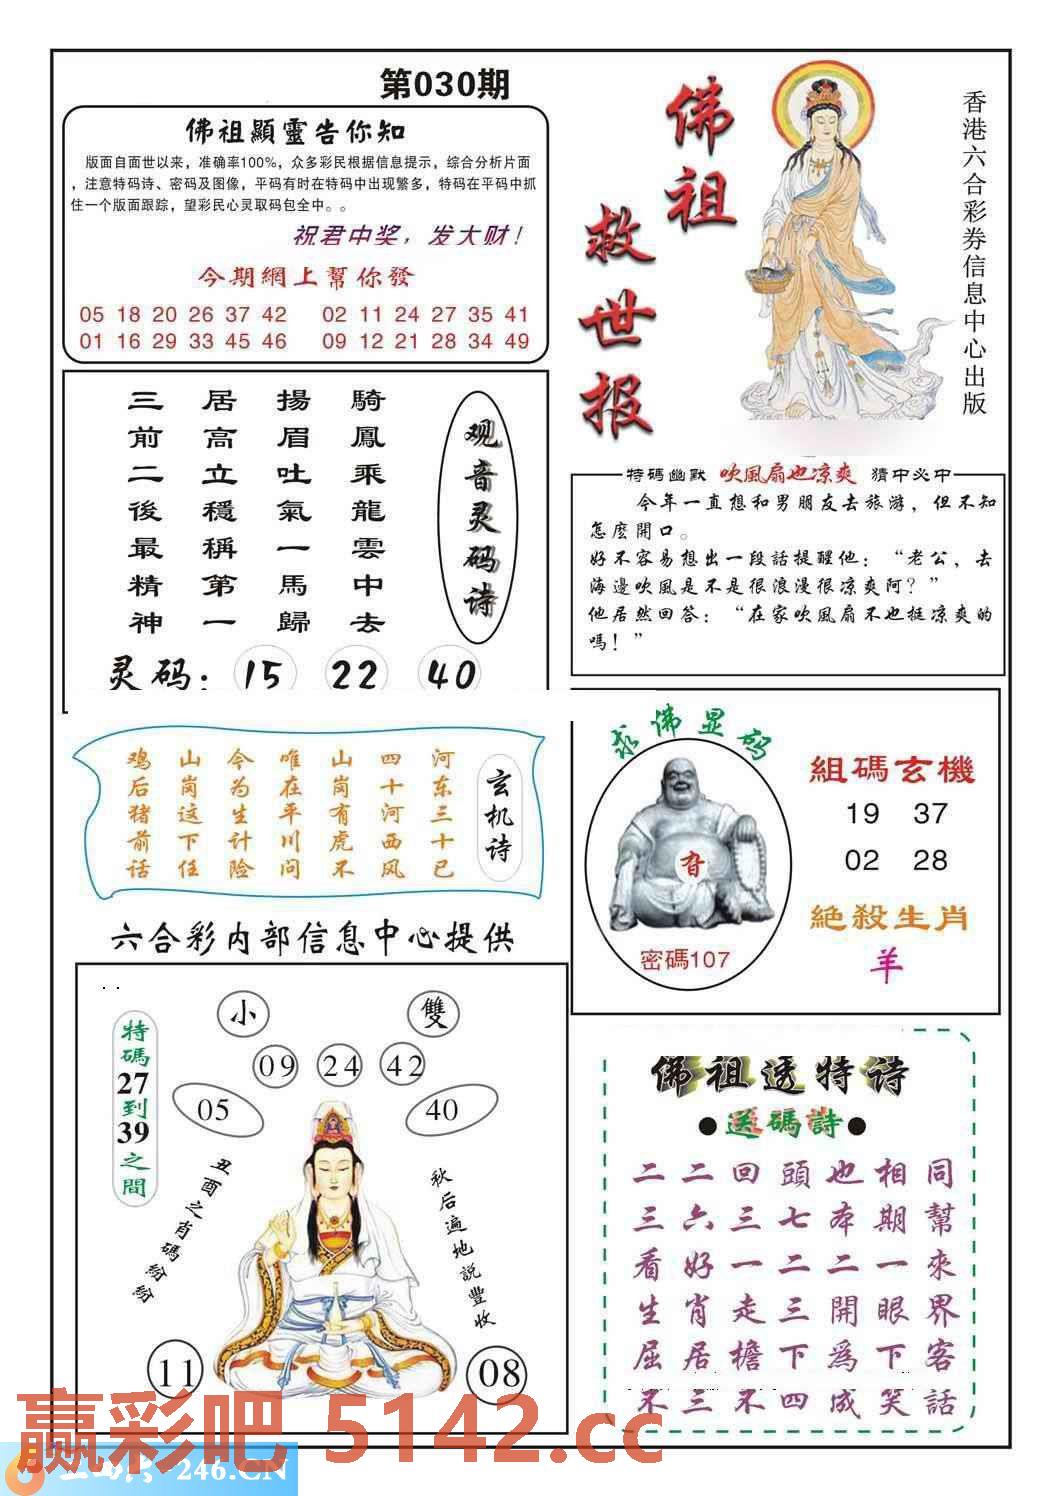 第030期
佛祖顯靈告你知
版面自面世以来，准确率100%，众多彩民根据信息提示，综合分析片面
，注意特码诗、密码及图像，平码有时在特码中出现繁多，特码在平码中抓
住一个版面跟踪，望彩民心灵取码包全中。。
祝君中奖，发大财！
今期網上幫你發
05 18 20 26 37 42 02 11 24 27 35 41
01 16 29 33 45 46 09 12 21 28 34 49
佛祖
救世报
香港六合彩券信息中心出版
观音灵码诗
騎鳳乘龍雲中去
揚眉吐氣一馬歸
居高立穩稱第一
三前二後最精神
灵码：15 22 40
特碼幽默 吹風扇也凉爽 猜中必中
今年一直想和男朋友去旅游，但不知
怎麽開口。
好不容易想出一段話提醒他：“老公，去
海邊吹風是不是很浪漫很凉爽阿？”
他居然回答：“在家吹風扇不也挺凉爽的
嗎！”
玄机诗
河东三十已
四十河西风
山岗有虎不
唯在平川问
今为生计险
山岗这下任
鸡后猪前话
求佛显码
密碼107
組碼玄機
19 37
02 28
絶殺生肖
羊
六合彩内部信息中心提供
特碼27到39之間
小 雙
09 24 42
05 40
丑酉之肖碼紛紛
秋后遍地説豐收
11 08
佛祖透特诗
●送碼詩●
二二回頭也相同
三六三七本期幫
看好一二二一來
生肖走三開眼界
屈居檐下爲下客
不三不四成笑話
赢彩吧 5142.cc
246.CN